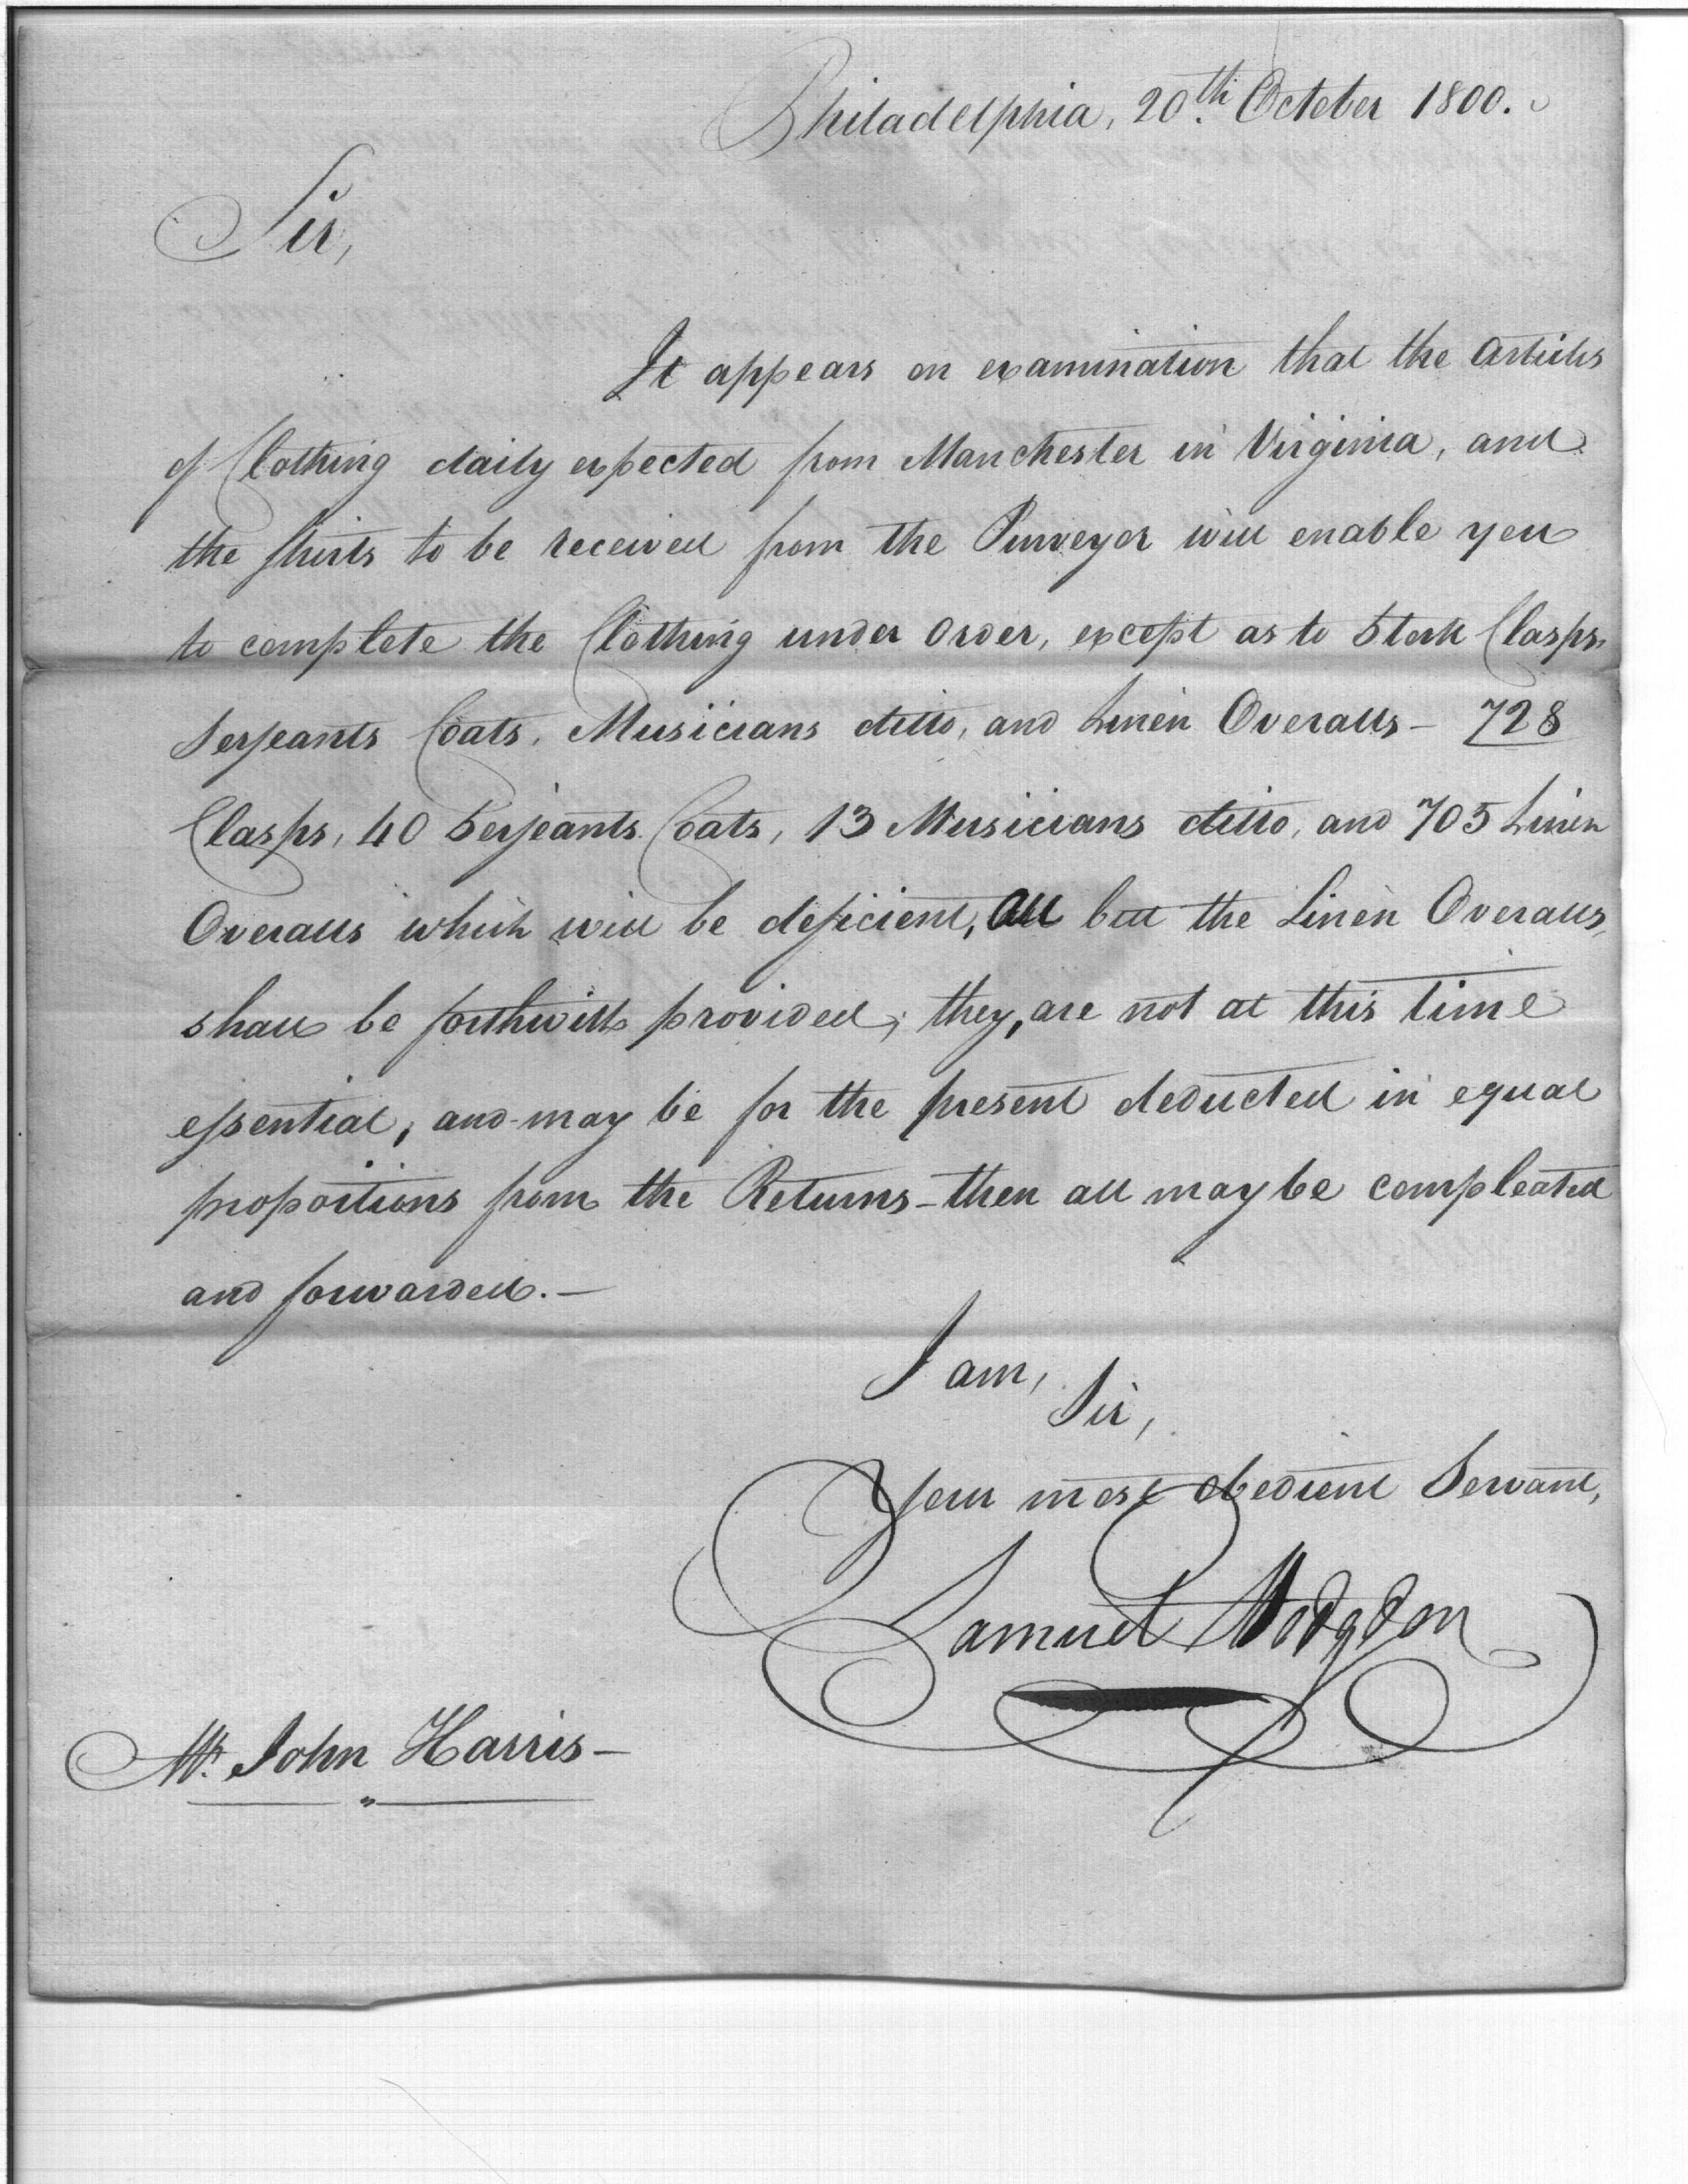 Philadelphia, 20th. October 1800.
Sir,
It appears on examination that the Articles
of Clothing daily expected from Manchester in Virginia, and
the Shirts to be received from the Purveyor will enable you
to complete the Clothing under Order, except as to Stock Clasps,
Serjeants Coats, Musicians ditto, and Linen Overalls - 728
Clasps, 40 Serjeants Coats, 13 Musicians ditto, and 705 Linen
Overalls which will be deficient, All but the Linen Overalls,
shall be forthwith provided; they, are not at this time
essential, and may be for the present deducted in equal
proportions from the Returns - then all may be compleated
and forwarded. —
I am,
Sir,
Your most obedient Servant,
Samuel Hodgdon
Mr. John Harris —